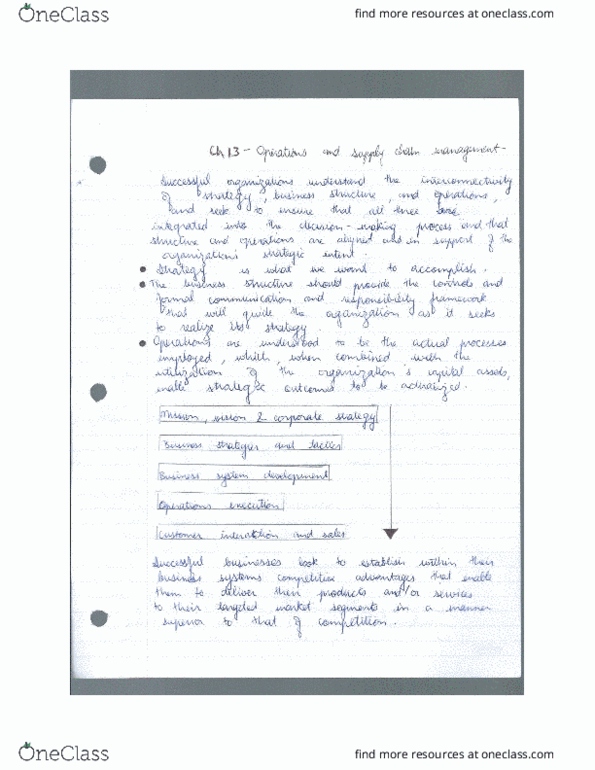 OneClass
find more resources at oneclass.com
Ch 13 - Operations and supply chain management -
Successful organizations understand the interconnectivity
of strategy, business structure, and operations,
and seek to ensure that all three are
integrated into the decision-making process and that
structure and operations are aligned and in support of the
organization's strategic intent.
• Strategy is what we want to accomplish.
• The business structure should provide the controls and
formal communication and responsibility framework
that will guide the organization as it seeks
to realize its strategy.
• Operations are understood to be the actual processes
employed, which, when combined with the
utilization of the organization's capital assets,
enable strategic outcomes to be
Mission, vision & corporate strategy
Business strategies and tactics
Business system development
Operations execution
Customer interaction and sales
Successful businesses look to establish within their
business systems competitive advantages that enable
them to deliver their products and/or services
to their targeted market segments in a manner
superior to that of competition.
OneClass
find more resources at oneclass.com